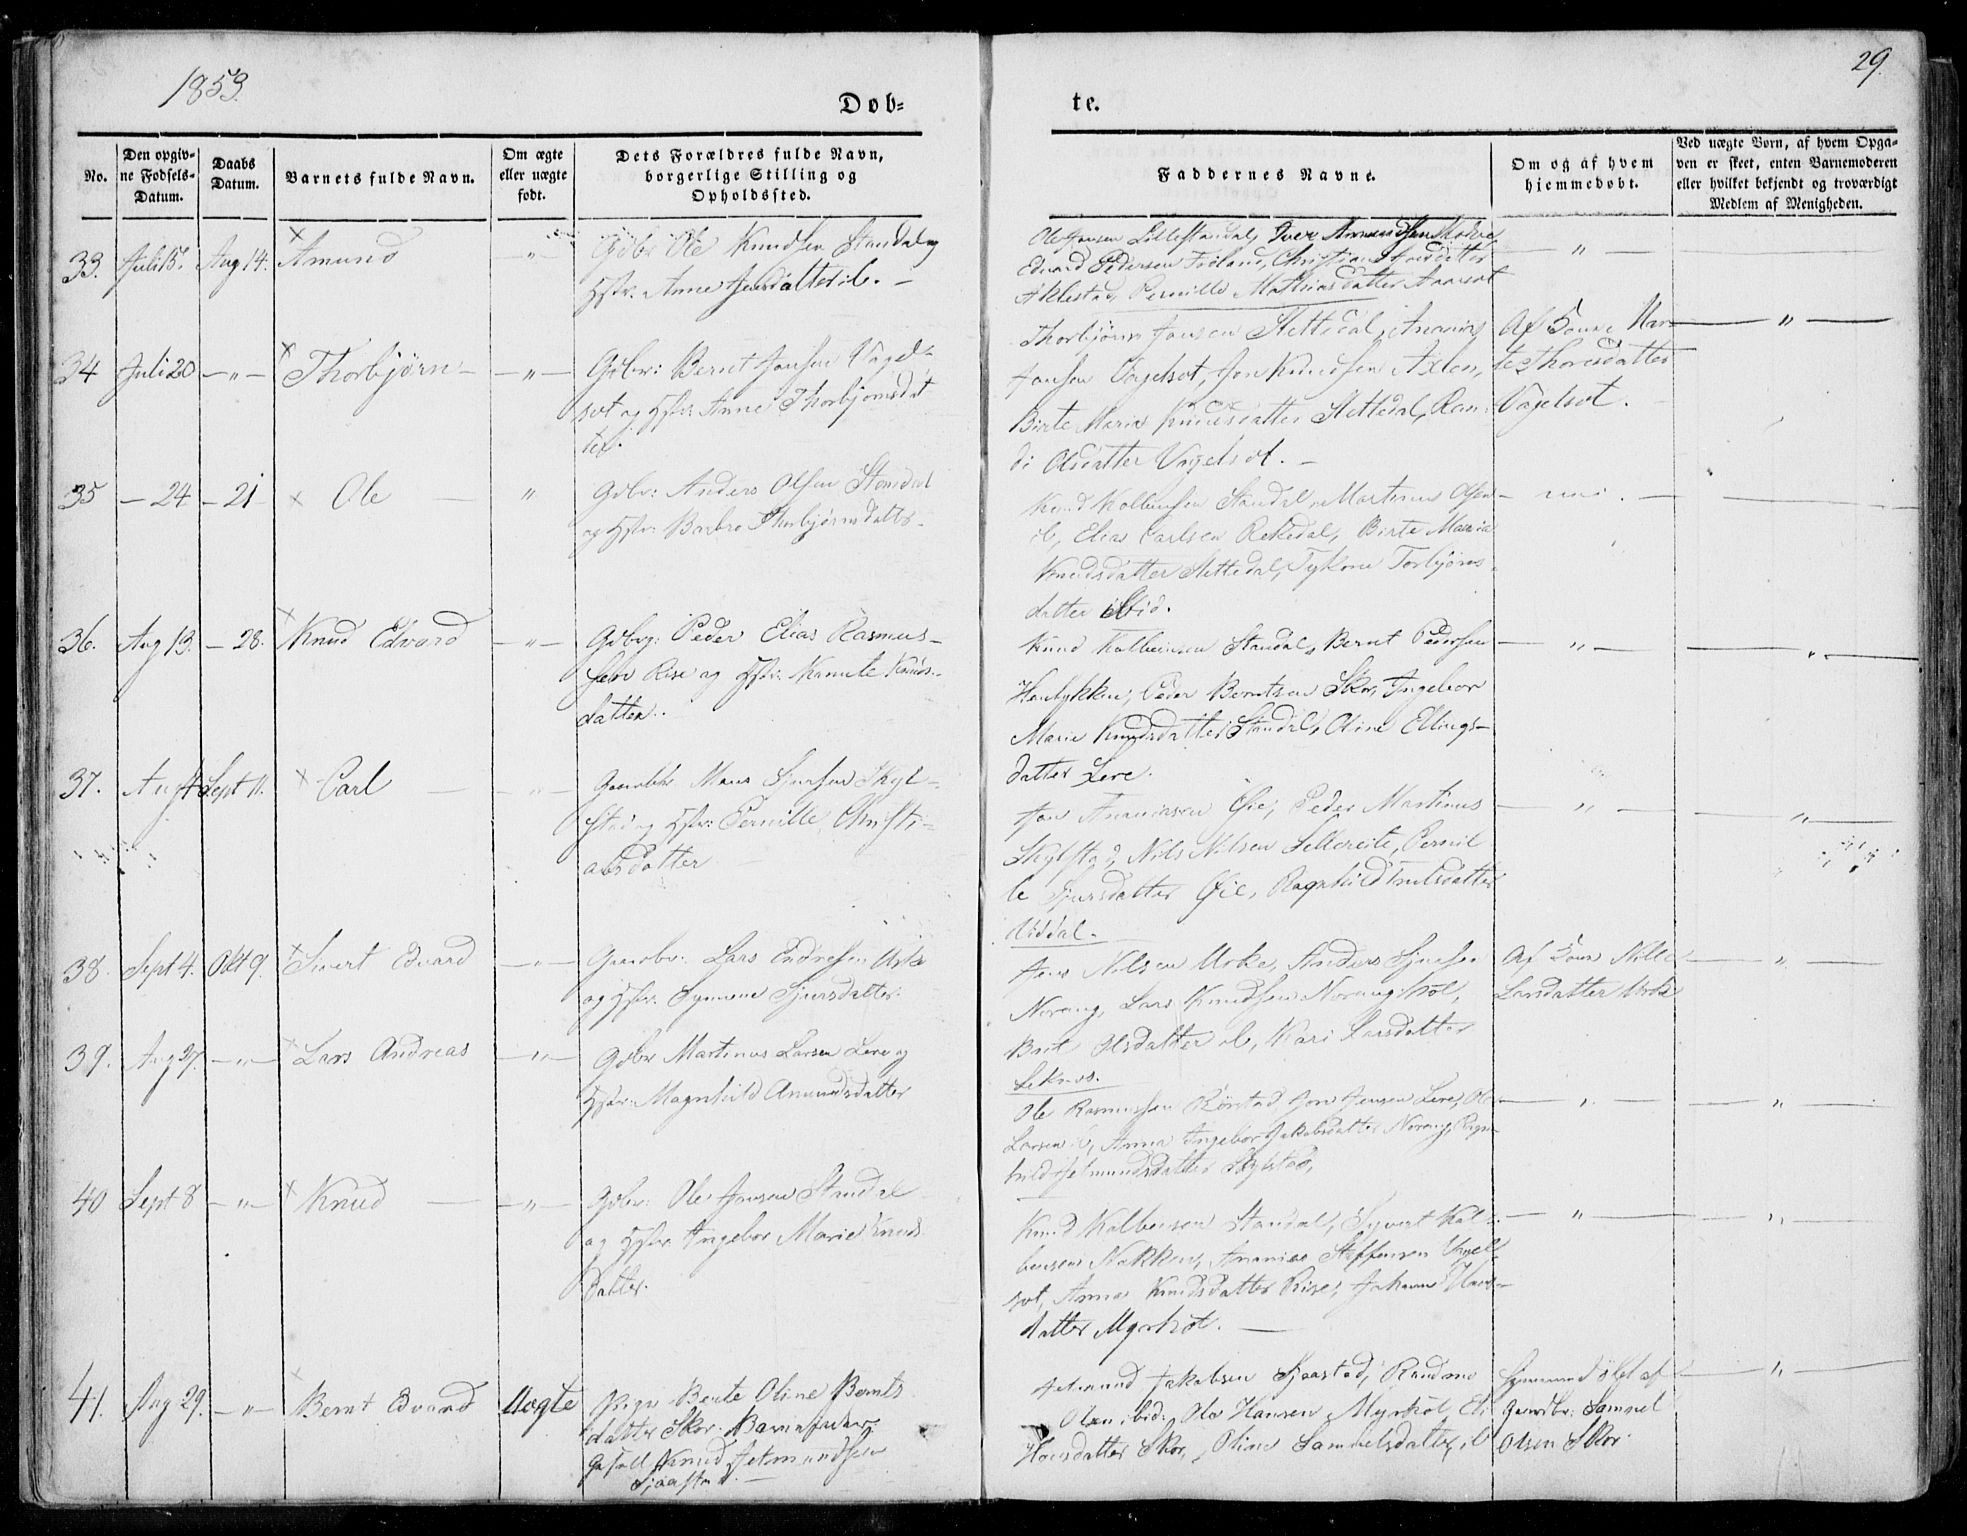 1853.
29.
Døb=
te.
No.
Den opgiv=
ne Fødsels=
Datum.
Daabs
Datum.
Barnets fulde Navn.
Om ægte
eller uægte
født.
Dets Forældres fulde Navn,
borgerlige Stilling og
Opholdssted.
Faddernes Navne.
Om og af hvem
hjemmedøbt.
Ved uægte Børn, af hvem Opga=
ven er skeet, enten Barnemoderen
eller hvilket bekjendt og troværdigt
Medlem af Menigheden.
33. Juli 15. Aug 14. Amund — " —
Gdbr Ole Knudsen Standal og
Hstr. Anne Jensdatter ib. —
Ole Jonsen Lillestandal, Iver Amundsen
Edvard Pedersen Friland, Christiane
Aklestad, Pernille Mathiasdatter Aarset
— " —
34 Juli 20 — " — Thorbjørn — — " —
Gdbr: Bernt Jonsen Vagel-
sæt og Hstr Anne Thorbjørnsdat
ter.
Thorbjørn Jonsen Stettedal, Ananias
Jonsen Vagelsæt, Jon Knudsen Axlen,
Birte Maria Knudsdatter Stettedal, Ran-
di Olsdatter Vagelset. —
Af Kone Mar-
te Thoresdatter
Vagelsæt.
— " —
35 — 24 — 21 Ole — "
Gdbr: Anders Olsen Standal
og Hstr: Barbro Thorbjørnsdattr.
Knud Kolbeinsen Standal, Martinus Olsen
ib, Elias Carlsen Rekedal, Birte Maria
Knudsdatter Stettedal, Torbjørns-
datter ibid.
36. Aug 13. — 28. Knud Edvard — " —
Gdbrg: Peder Elias Rasmus-
sen Rise og Hstr: Kanute Knuds-
datter.
Knud Kolbeinsen Standal, Bernt Pedersen
Haulykken, Peder Berntsen Skor, Ingebor
Marie Knudsdatter Standal, Oline Ellings-
datter Lere.
— " —
— " —
37. Aug 14 Sept 11. Carl — — " —
Gaardbr Mons Sjursen Skyl-
stad og Hstr: Pernille Christi-
ansdatter
Jon Ananiasen Øie, Peder Martinus
Skylstad, Nils Nilsen Lillereite, Pernil
le Sjursdatter Øie, Ragnhild Truelsdatter
Viddal.
— " —
— " —
38. Sept 4. Okt 9. Sivert Edvard — " —
Gaardbr. Lars Endresen Urke
og Hstr. Symene Sjursdatter.
Jens Nilsen Urke, Anders Sjursen
Norang, Lars Knudsen Norangshol,
Brit Olsdatter ib, Kari Larsdatter
Leknes.
Af Kone Nille
Larsdatter Urke
— " —
39. Aug 27. — " — Lars Andreas — " —
Gdbr Martinus Larsen Lere og
Hstr: Magnhild Amundsdatter
Ole Rasmussen Rørstad, Jon Jensen Lere, Ole
Larsen ib, Anna Ingebor Jakobsdatter Norang, Ragn-
hild Jetmundsdatter Skylstad,
— " —
— " —
40 Sept 8 — " — Knud — — " —
Gdbr: Ole Jonsen Standal
og Hstr Ingebor Marie Knuds-
datter.
Knud Kolbensen Standal, Syvert Kol-
bensen Nakken, Ananias Steffensen Vagel-
sæt, Anna Knudsdatter Rise, Johanne Hans-
datter Myrhol. —
— " —
— " —
41. Aug 29. — " — Bernt Edvard Uægte
Pige Berte Oline Bernts
datter Skor. Barnefader
Knud Jetmundsen
Sjaastad. —
Jetmund Jakobsen Sjaastad, Rasmus
Olsen ibid, Ole Hansen Myrhol, Eli
Hansdatter Skor, Oline Samuelsdatter ib
Hjemmedøbt af
Gaardbr: Samuel
Olsen Skor.
— " —